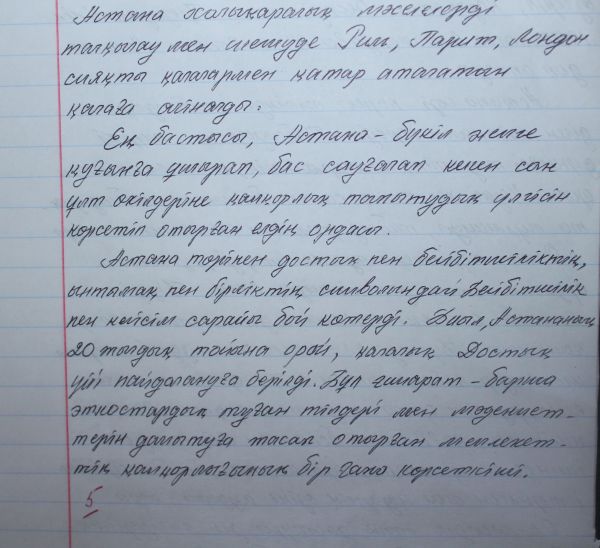 Астана халықаралық мәселелерді
талқылау мен шешуде Рим, Париж, Лондон
сияқты қалалармен қатар аталатын
қалаға айналды.
Ең бастысы, Астана – бүкіл жеке
қуғынға ұшырап, бас сауғалап келген сан
ұлт өкілдеріне қамқорлық танытудың үлгісін
көрсетіп отырған елдің ордасы.
Астана төрінен достық пен бейбітшіліктің,
ынтымақ пен бірліктің символындай Бейбітшілік
пен келісім сарайы бой көтерді. Биыл, Астананың
20 жылдық тойына орай, қалалық Достық
үйі пайдалануға берілді. Бұл ғимарат – барша
этностардың туған тілдері мен мәдениет-
терін дамытуға жасап отырған мемлекет-
тің қамқорлығының бір ғана көрсеткіші.
5